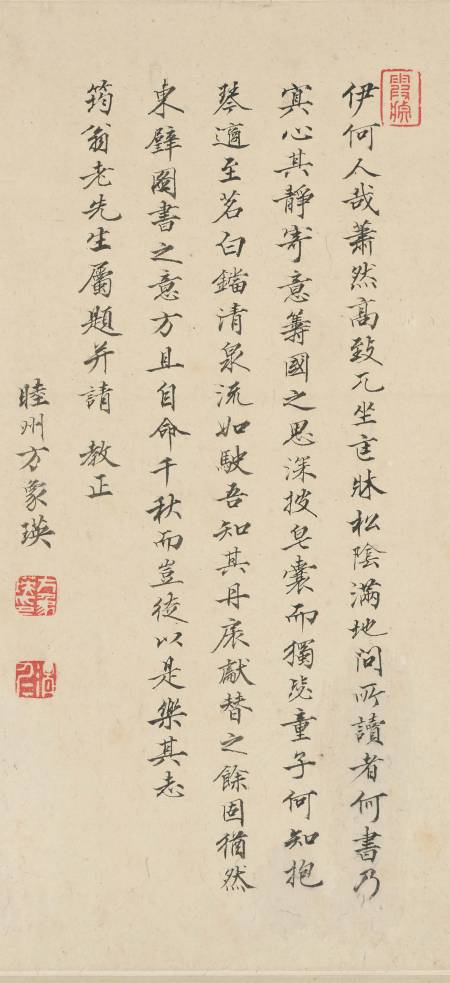 伊何人哉蕭然高致兀坐匡牀松陰滿地問所讀者何書乃
寘心其靜寄意籌國之思深披皂囊而獨毖童子何知抱
琴適至茗臼鐺清泉流如駛吾知其丹扆獻替之餘固猶然
東壁圖書之意方且自命千秋而豈徒以是樂其志
筠翁老先生屬題并請 教正
睦州方象瑛
方象瑛印